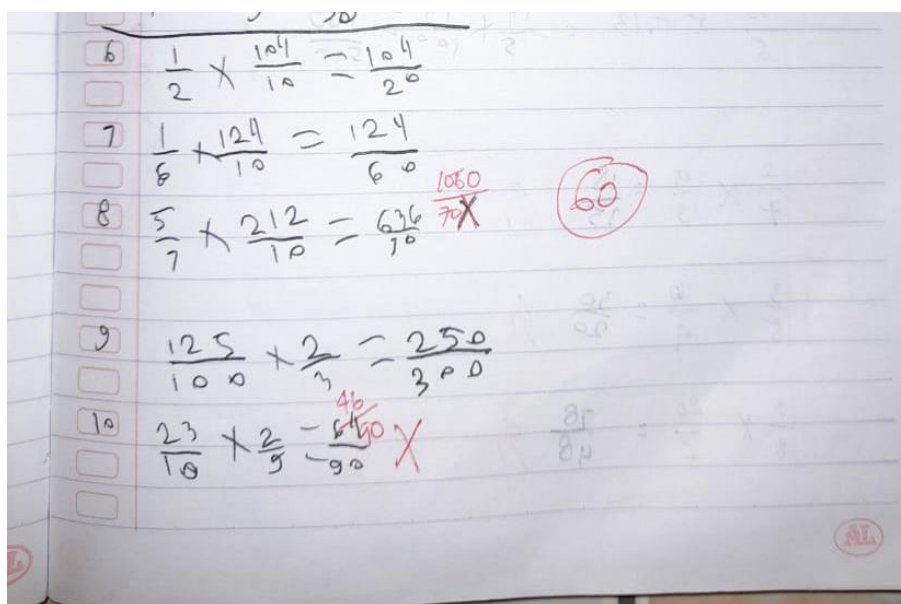 6 1/2 × 104/10 = 104/20
7 1/6 × 124/10 = 124/60
8 5/7 × 212/10 = 636/70 1060/70 X
60
9 125/100 × 2/3 = 250/300
10 23/10 × 2/9 = 64/90 46/90 X
AL